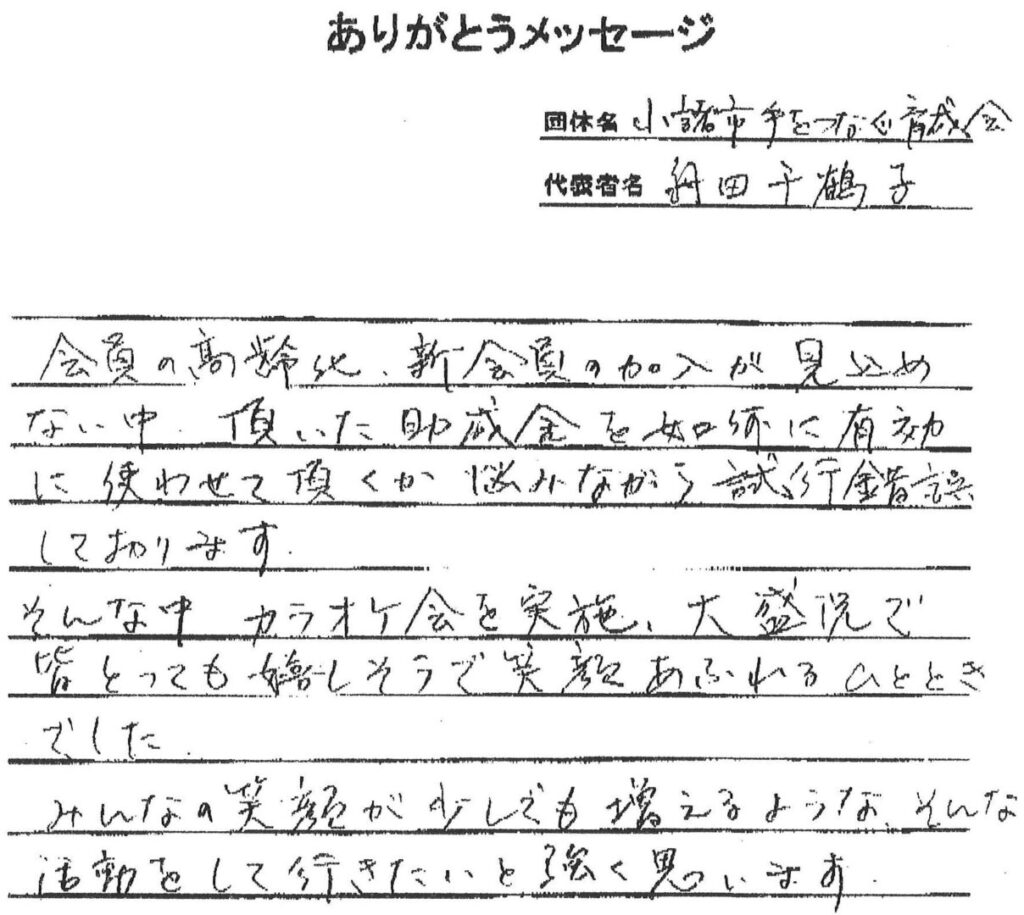 ありがとうメッセージ
団体名 小諸市手をつなぐ育成会
代表者名 舟田千鶴子
会員の高齢化、新会員の加入が見込め
ない中、頂いた助成金を如何に有効
に使わせて頂くか悩みながら試行錯誤
しております。
そんな中 カラオケ会を実施、大盛況で
皆とっても嬉しそうで笑顔あふれるひととき
でした。
みんなの笑顔が少しでも増えるような、そんな
活動をして行きたいと強く思います。